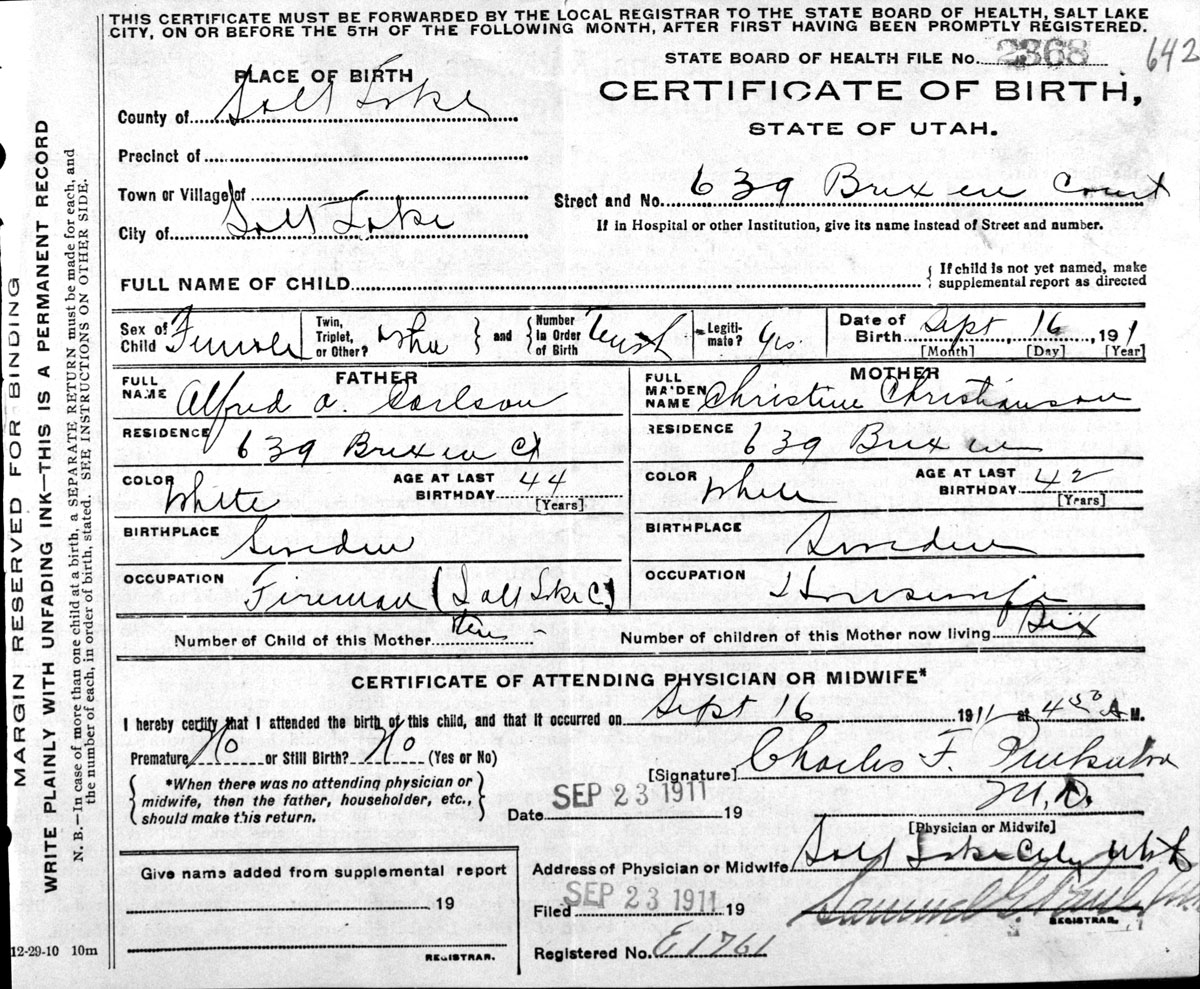 THIS CERTIFICATE MUST BE FORWARDED BY THE LOCAL REGISTRAR TO THE STATE BOARD OF HEALTH, SALT LAKE
CITY, ON OR BEFORE THE 5TH OF THE FOLLOWING MONTH, AFTER FIRST HAVING BEEN PROMPTLY REGISTERED.
STATE BOARD OF HEALTH FILE No. 2368 642
PLACE OF BIRTH
CERTIFICATE OF BIRTH,
STATE OF UTAH.
County of Salt Lake
Precinct of
Town or Village of
Street and No. 639 Brixen Court
City of Salt Lake
If in Hospital or other Institution, give its name instead of Street and number.
FULL NAME OF CHILD { If child is not yet named, make
supplemental report as directed
Sex of Child Female
Twin, Triplet, or Other? } and { Number in Order of Birth
Legitimate? Yes
Date of Birth Sept 16, 1911
[Month] [Day] [Year]
FATHER
FULL NAME Alfred A. Carlson
RESIDENCE 639 Brixen Ct
COLOR White AGE AT LAST BIRTHDAY 44 [Years]
BIRTHPLACE Sweden
OCCUPATION Fireman (Salt Lake C)
MOTHER
FULL MAIDEN NAME Christine Christianson
RESIDENCE 639 Brixen
COLOR White AGE AT LAST BIRTHDAY 42 [Years]
BIRTHPLACE Sweden
OCCUPATION Housewife
Number of Child of this Mother
Number of children of this Mother now living Six
CERTIFICATE OF ATTENDING PHYSICIAN OR MIDWIFE*
I hereby certify that I attended the birth of this child, and that it occurred on Sept 16 1911 at 4 50 A M.
Premature No or Still Birth? No (Yes or No)
{ *When there was no attending physician or
midwife, then the father, householder, etc.,
should make this return. }
[Signature] Charles F.
M.D.
Date SEP 23 1911 19
[Physician or Midwife]
Address of Physician or Midwife Salt Lake City Utah
Filed SEP 23 1911 19
REGISTRAR.
Registered No. E1761
Give name added from supplemental report
19
REGISTRAR.
12-29-10 10m
MARGIN RESERVED FOR BINDING
WRITE PLAINLY WITH UNFADING INK—THIS IS A PERMANENT RECORD
N. B.—In case of more than one child at a birth, a SEPARATE RETURN must be made for each, and
the number of each, in order of birth, stated. SEE INSTRUCTIONS ON OTHER SIDE.